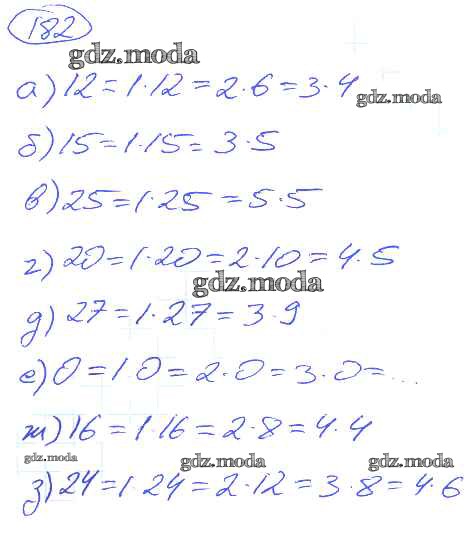 182
gdz.moda
а) 12 = 1·12 = 2·6 = 3·4
gdz.moda
б) 15 = 1·15 = 3·5
в) 25 = 1·25 = 5·5
г) 20 = 1·20 = 2·10 = 4·5
gdz.moda
д) 27 = 1·27 = 3·9
е) 0 = 1 0 = 2·0 = 3·0 = ...
ж) 16 = 1·16 = 2·8 = 4·4
gdz.moda gdz.moda gdz.moda
з) 24 = 1·24 = 2·12 = 3·8 = 4·6